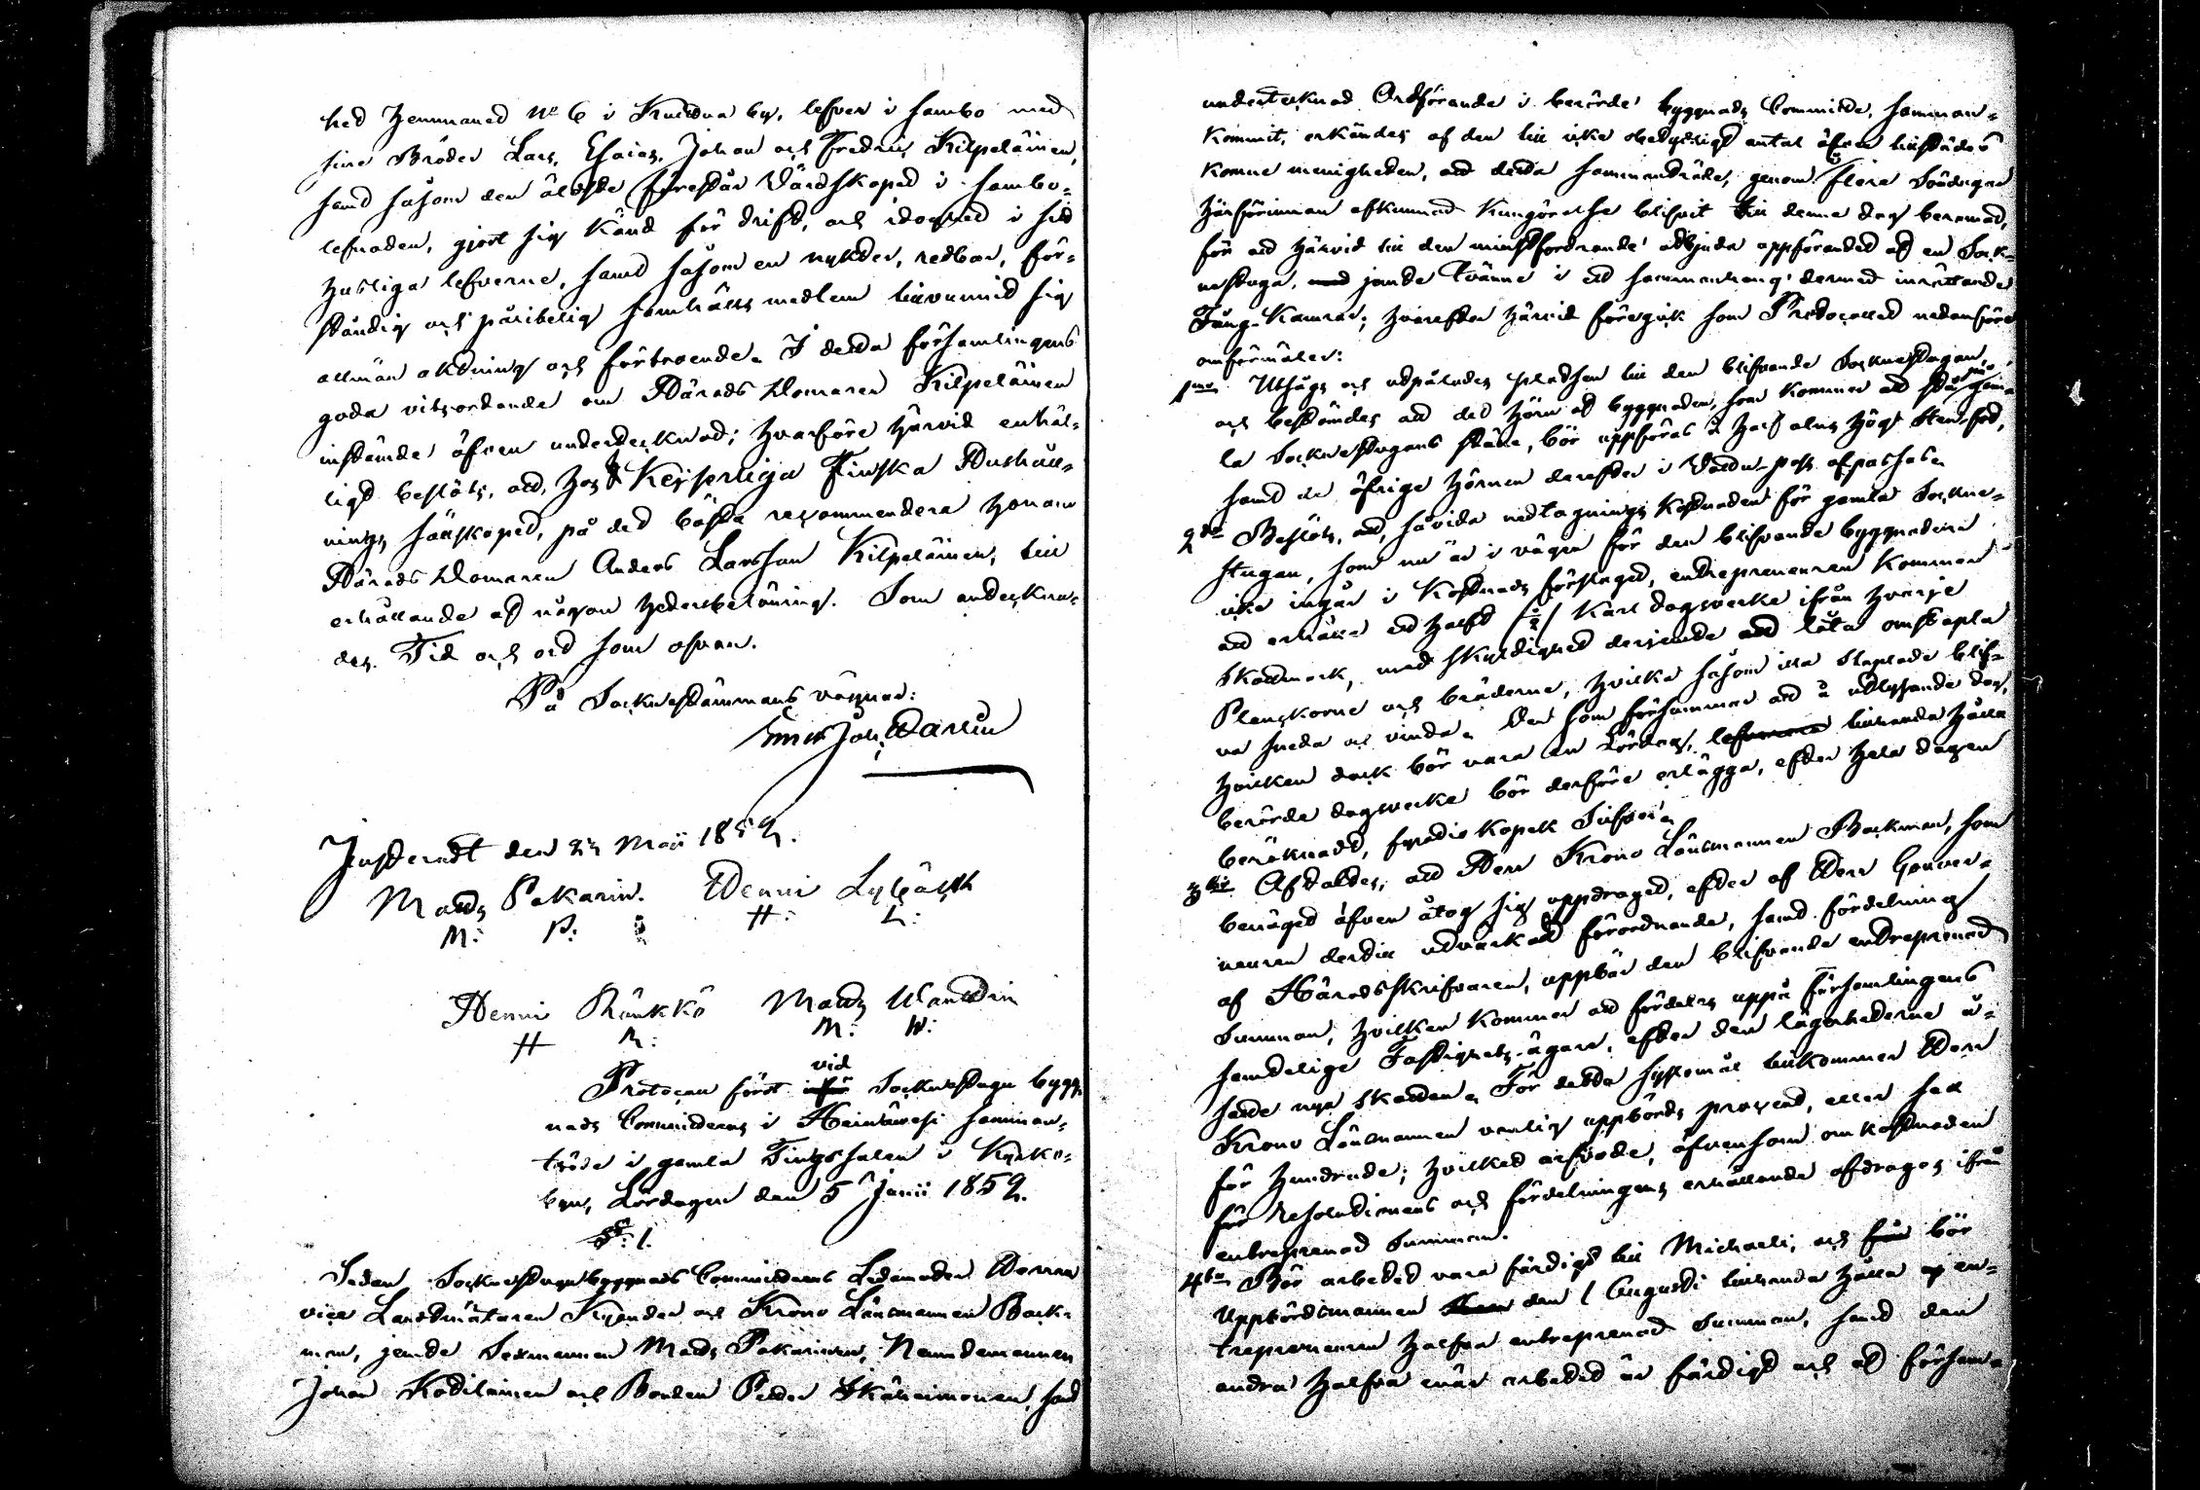 hed Hemmaned No 6 i Kuittua by, lefver i sambo med
sine Bröder Lars, Esaias, Johan och Fredric Kilpeläinen,
samt såsom den äldste förestår Värdskapet i sambo-
lefnaden, gjort sig känd för drift, och idoghet i sitt
husliga lefverne, samt såsom en nykter, redbar, för-
ståndig och pålitelig samhälls medlem tillvunnit sig
allmän aktning och förtroende. I detta församlingens
goda vitsordande om Härads Domaren Kilpeläinen
instämde äfven undertecknad; hvarföre härvid enhäl-
ligt beslöts, att, hos Kejserliga Finska Hushåll-
nings sällskapet, på det bästa recommendera honom
Härads Domaren Anders Larsson Kilpeläinen, till
erhållande af någon hedersbelöning. Som antecknа-
des. Tid och ort som ofvan.
På Sockneståmmans vägnar:
Eric Joh: Warlin
Justeradt den Maii 1852.
Matts Pakarin. Henric Lybäck
M: P: H: L:
Henric Räukkö Matts Wanttin
H R: M: W:
vid
Protocoll fört Socknestugu bygg-
nads Committeens i Heinäwesi samman-
träde i gamla Tingssalen i Kyrko-
byn, Lördagen den 5 Junii 1852.
§: 1.
Sedan Socknestugubyggnads Committeens Ledamöter Herrar
vice Landtmätaren Kyander och Krono Länsmannen Back-
man, jemte Sexmannen Matts Pakarinen, Nämndemannen
Johan Kotilainen och Bonden Petter Ikäheimonen, samt
undertecknad Ordförande i berörde byggnads Committé, samman-
kommit, erkändes af den till icke obetydligt antal äfven tillstädes
komne menigheten, att detta sammanträde, genom flere Söndagar
härförinnan afkunnad kungörelse blifvit till denne dag beramad,
för att härvid till den minstfordrande utbjuda uppförandet af en Sock-
nestuga, jemte tvänne i ett sammanhang dermed inrättande
Fång-Kamrar; hvarefter härvid föregick som Protocollet nedanföre
omförmäler:
1mo Utsågs och utpålades platsen till den blifvande Socknestugan,
och bestämdes att det hörn af byggnaden, som kommer att stå på gam-
la Socknestugans ställe, bör uppföras å half alns hög stenfot,
samt de öfrige hörnen derefter i Vattu-pass afpassas.
2do Beslöts, att, såvida nedtagnings kostnaden för gamla Sockne-
stugan, som nu är i vägen för den blifvande byggnaden
icke ingår i Kostnads förslaget, entrepreneuren kommer
att erhålla ett halft /½/ Karl dagsverke ifrån hvarje
skattmark, med skyldighet derjemte att låta omstapla
Plankorne och bräderne, hvilka såsom illa staplade blif-
va sneda och vinda. Den som försummar att å utlysande dag,
hvilken dock bör vara en Lördag, tillhanda hålla
berörde dagsverke bör derföre erlägga, efter hela dagen
beräknadt, fyratio kopek Silfver.
3tio Aftaltes, att Herr Krono Länsmannen Backman, som
benäget äfven åtog sig uppdraget, efter af Herr Gouver-
neuren dertill utverkadt förordnande, samt fördelning
af Häradsskrifvaren, uppbär den blifvande entreprenad
Summan, hvilken kommer att fördelas uppå församlingens
samtelige Fastighets-ägare, efter den lägenheterne å-
satte nya skatten. För detta sysslomål tillkommer Herr
Krono Länsmannen vanlig uppbörds procent, eller sex
för hundrade; hvilket arfvode, äfvensom omkostnaden
för Resolutionens och fördelningens erhållande afdrages ifrån
entreprenad Summan.
4to Bör arbetet vara färdigt till Michaeli, och bör
Uppbördsmannen den 1 Augusti tillhanda hålla en-
trepreneuren halfva entreprenad Summan, samt den
andra halfva när arbetet är färdigt och af försam-